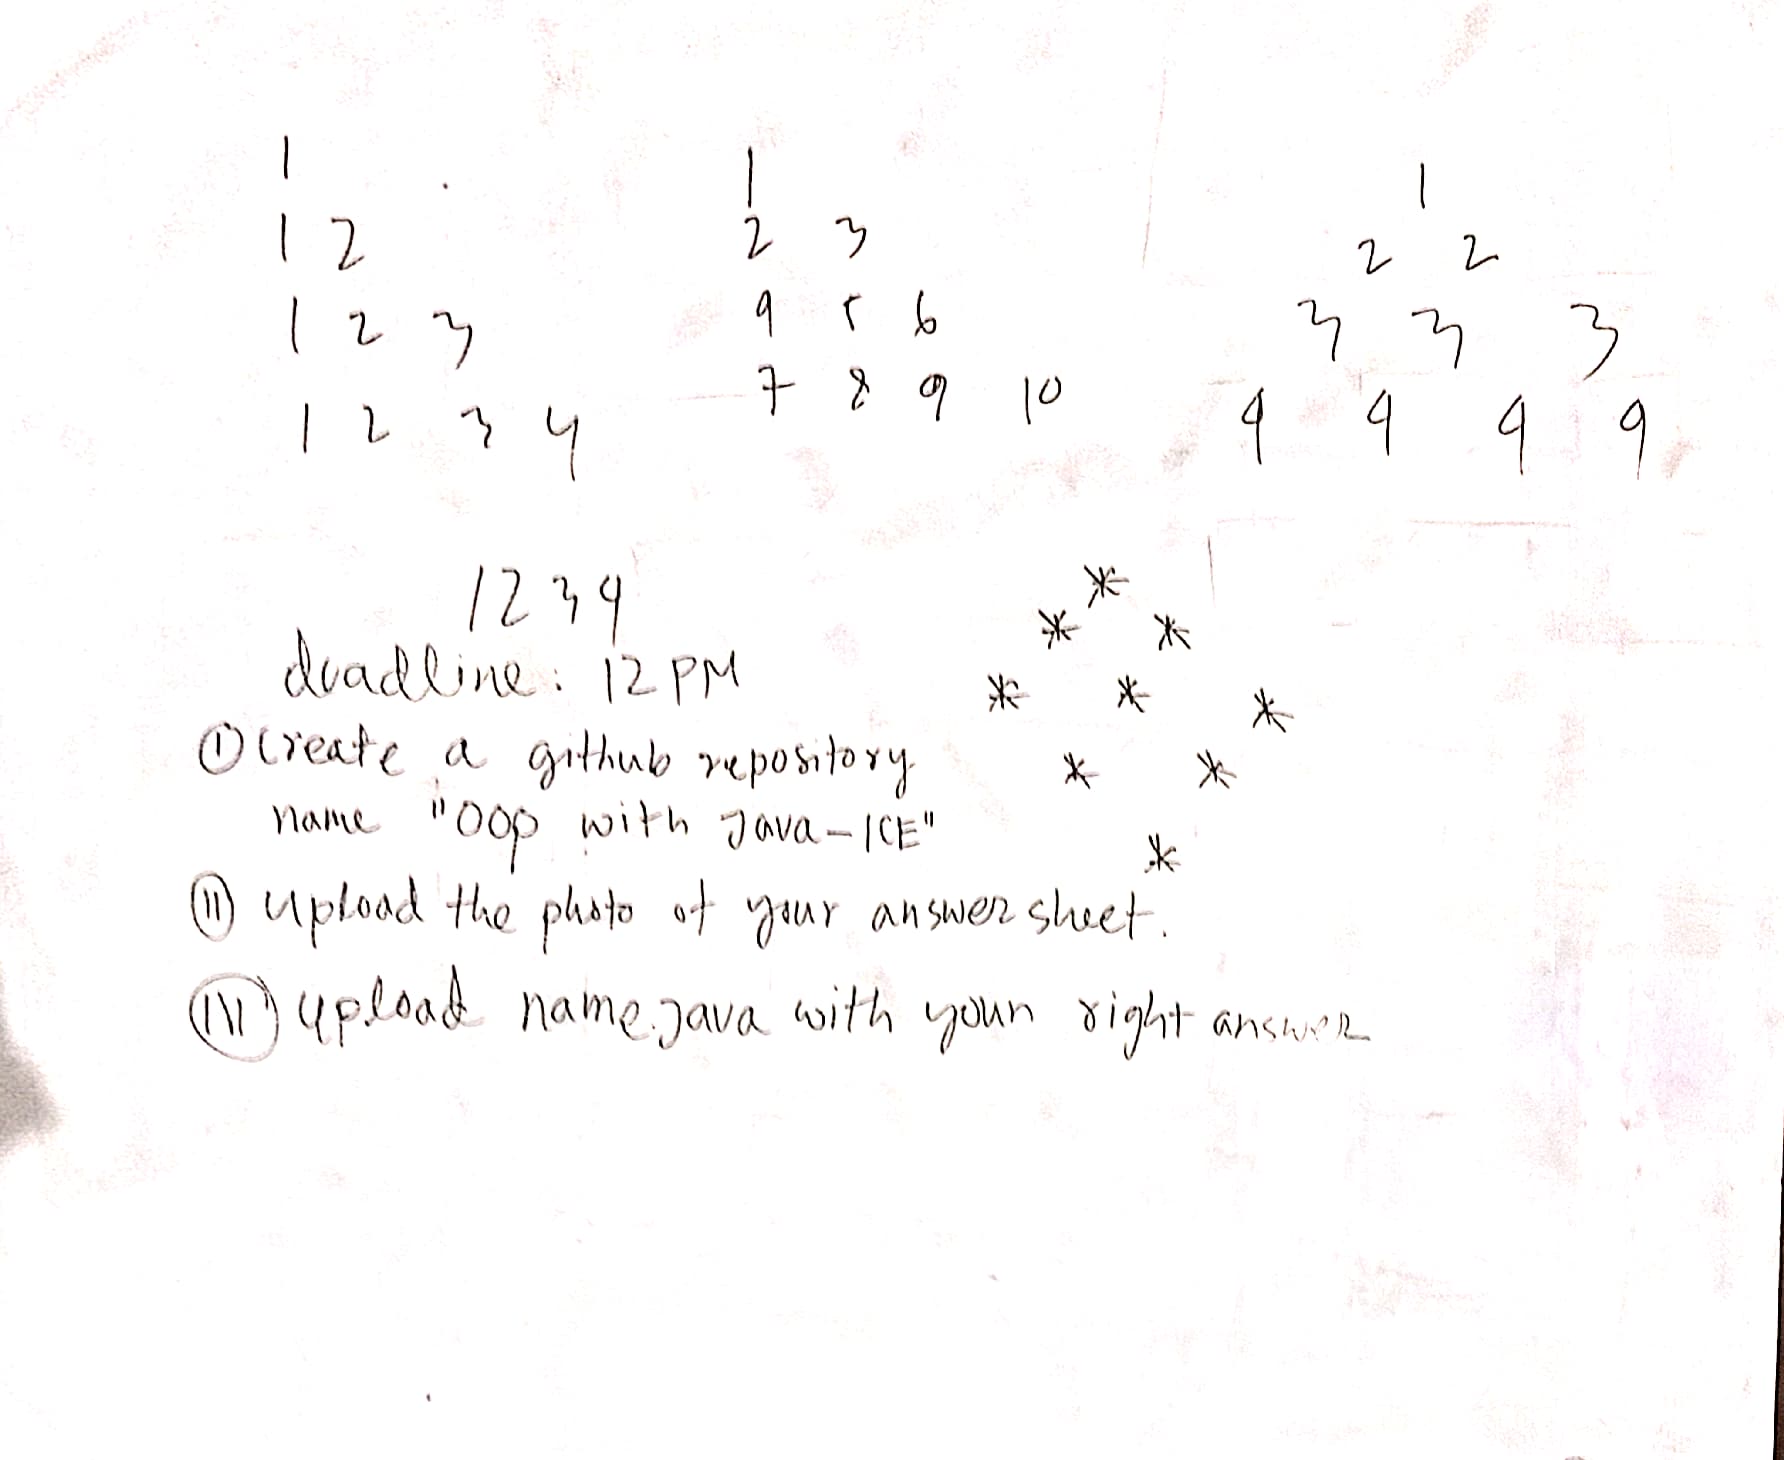 1
1 2
1 2 3
1 2 3 4
1
2 3
4 5 6
7 8 9 10
1
2 2
3 3 3
4 4 4 4
1234
*
* *
* * *
* *
*
deadline: 12 PM
(I) Create a github repository
name "OOP with Java-ICE"
(II) upload the photo of your answer sheet.
(III) upload name.java with your right answer